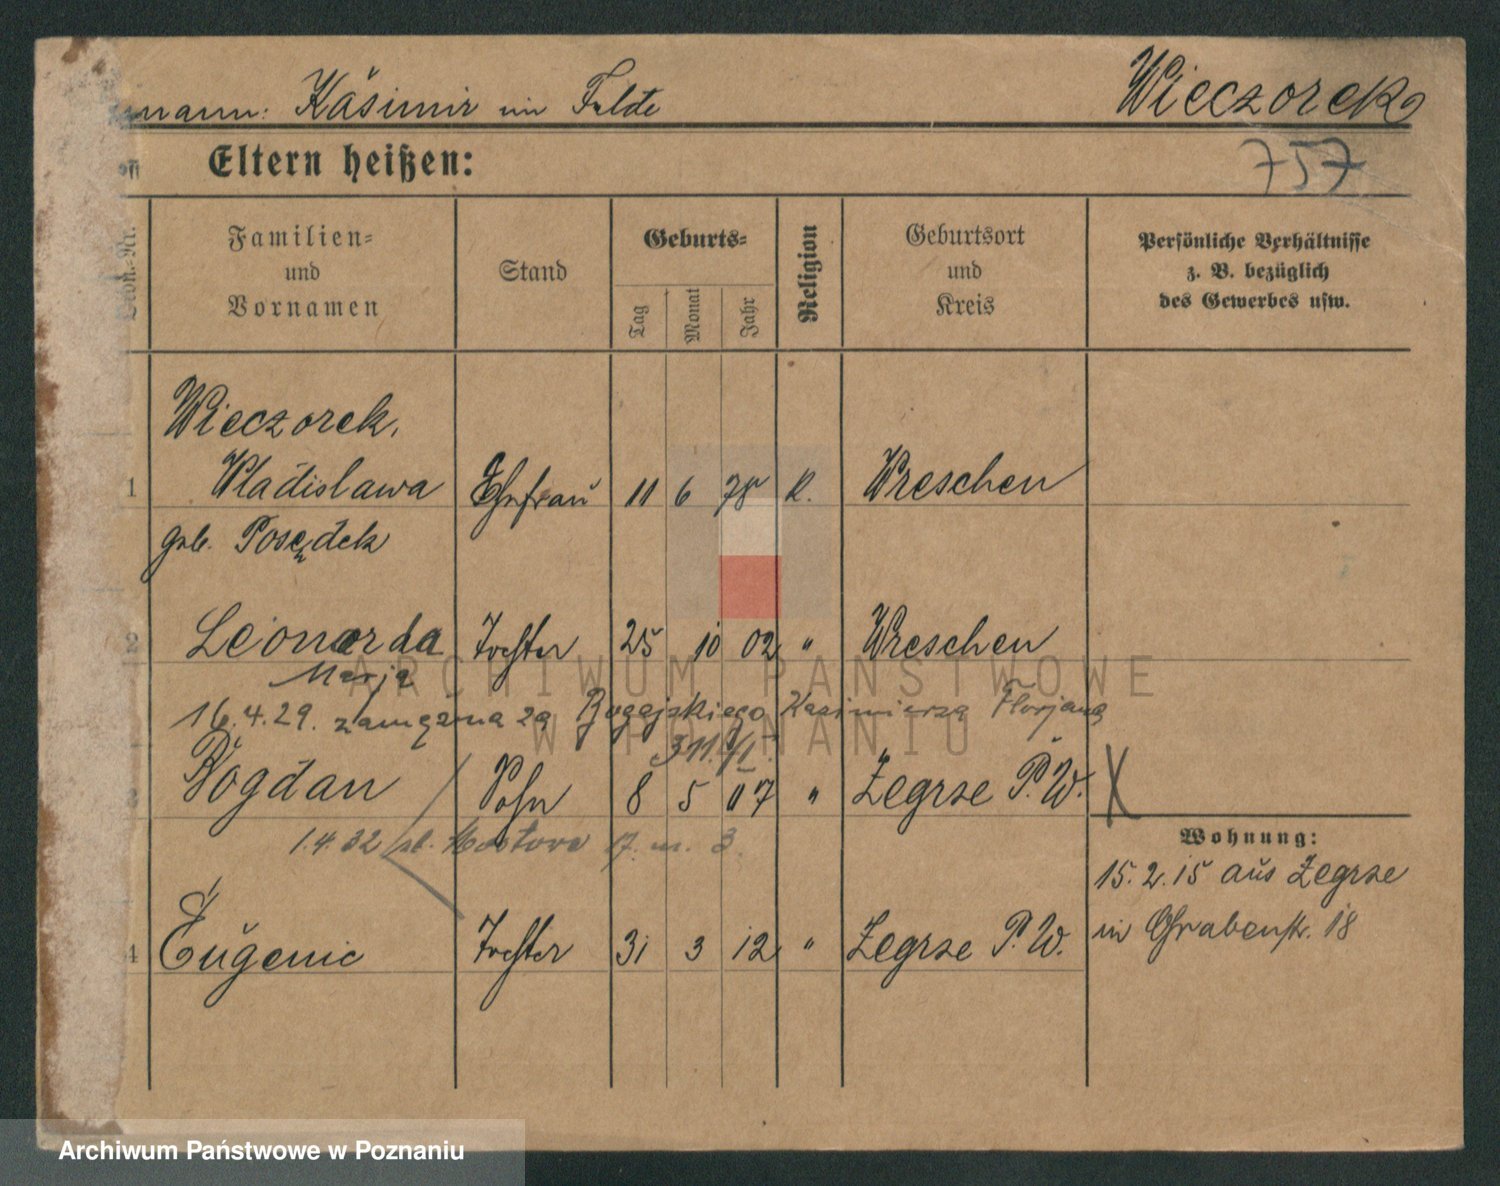 mann: Käsimir im Felde Wieczorek
757
Eltern heißen:
Familien- und Vornamen
Stand
Geburts-
Tag Monat Jahr
Religion
Geburtsort und Kreis
Persönliche Verhältnisse
z. B. bezüglich
des Gewerbes usw.
Wieczorek,
1 Wladislawa Ehefrau 11 6 78 K. Wreschen
geb. Posędek
2 Leonarda Tochter 25 10 02 " Wreschen
Marja
16.4.29. zamężna za Bugajskiego Kazimierza Florjana
Bogdan Sohn 8 5 07 " Zegrze P. W.
Wohnung:
1.4.32 17 m. 3.
15.2.15 aus Zegrze
4 Eugenie Tochter 31 3 12 " Zegrze P. W.
in Grabenstr. 18
ARCHIWUM PAŃSTWOWE
W POZNANIU
Archiwum Państwowe w Poznaniu